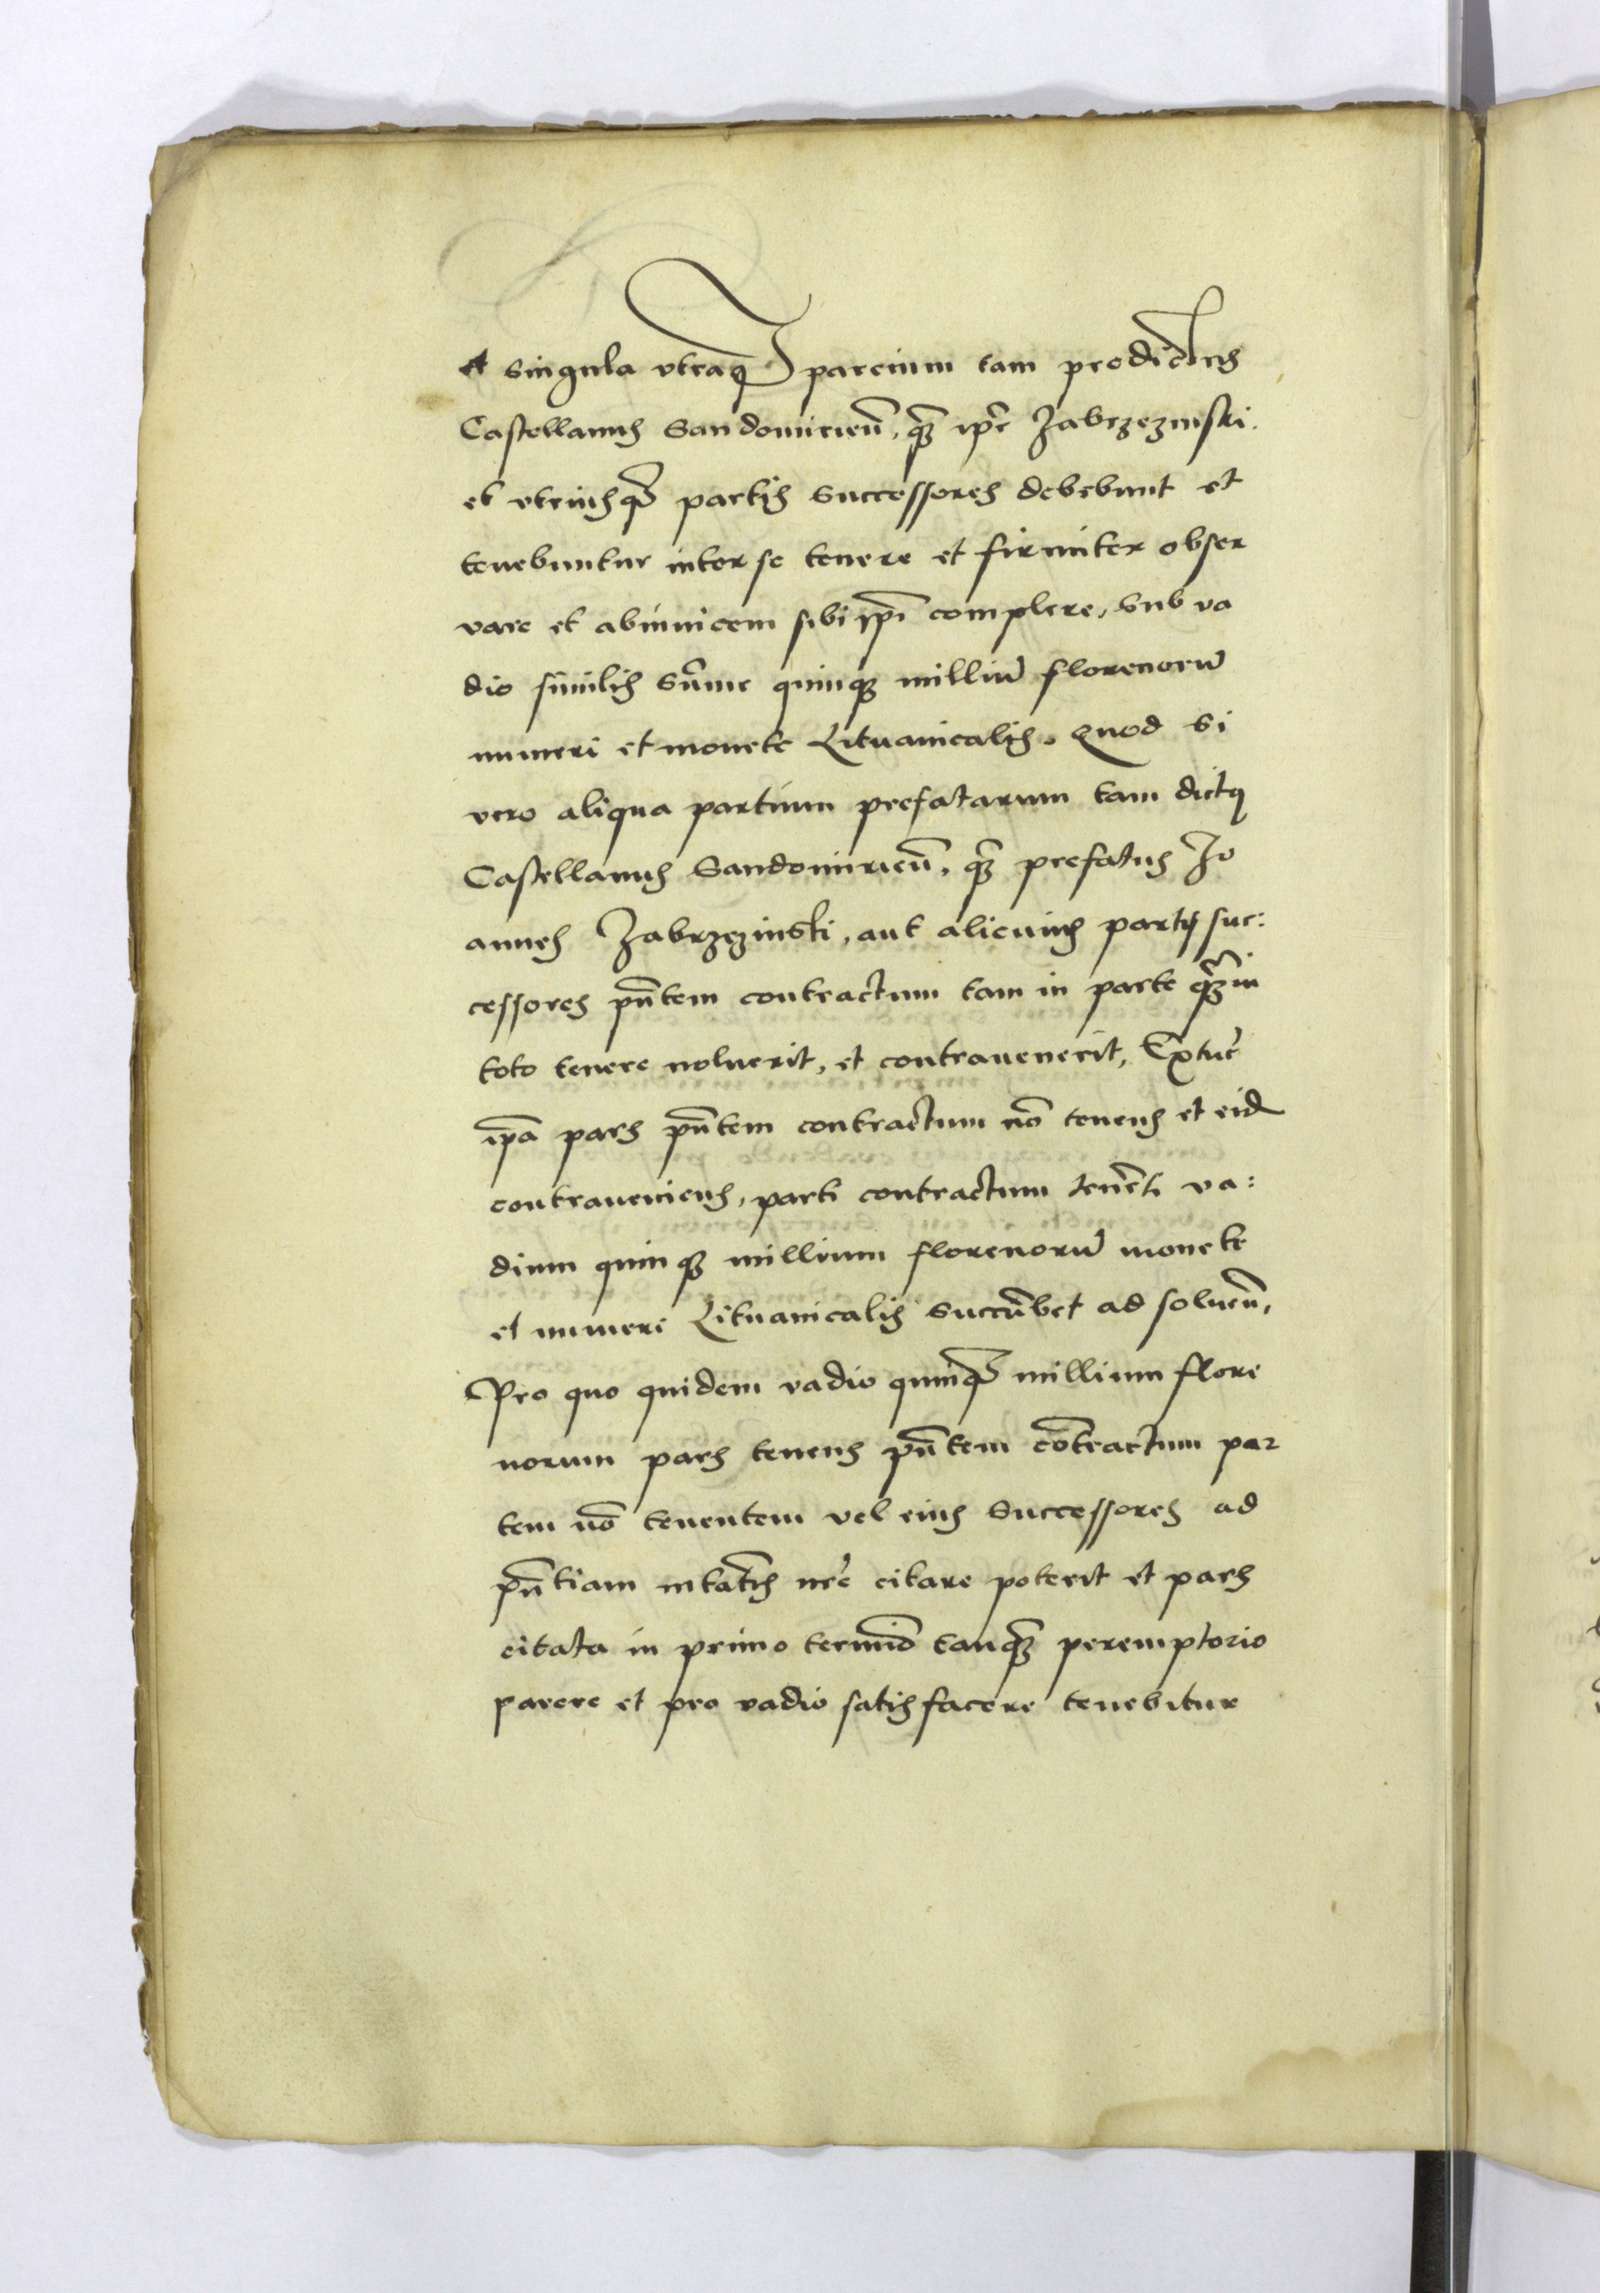 et singula vtraq parcium tam predictus
Castellanus Sandomirieñ, q̃ȝ ip̃e Zabrzezinski.
et vtriusq̃ȝ partis successores debebunt et
tenebuntur inter se tenere et firmiter obser
vare et abinuicem sibi ip̃i complere, sub va
dio similis sũme quinqȝ milliũ florenorũ
numeri et monete Lituanicalis. Quod si
vero aliqua partium prefatarum tam dictꝰ
Castellanus Sandomirieñ, q̃ȝ prefatus Jo
annes Zabrzezinski, aut alicuius partis suc:
cessores pñtem contractum tam in parte q̃ȝ in
toto tenere noluerit, et contrauenerit, Extũc
ip̃a pars pñtem contractum nõ tenens et eid
contraueniens, parti contractum tenẽti va:
dium quinqȝ millium florenorũ monete
et numeri Lituanicalis succũbet ad solueñ,
Pro quo quidem vadio quinq̃ȝ millium flore
norum pars tenens pñtem cõtractum par
tem nõ tenentem vel eius successores ad
pñtiam mtãtis nr̃e citare poterit et pars
citata in primo termĩo tanq̃ȝ peremptorio
parere et pro vadio satisfacere tenebitur